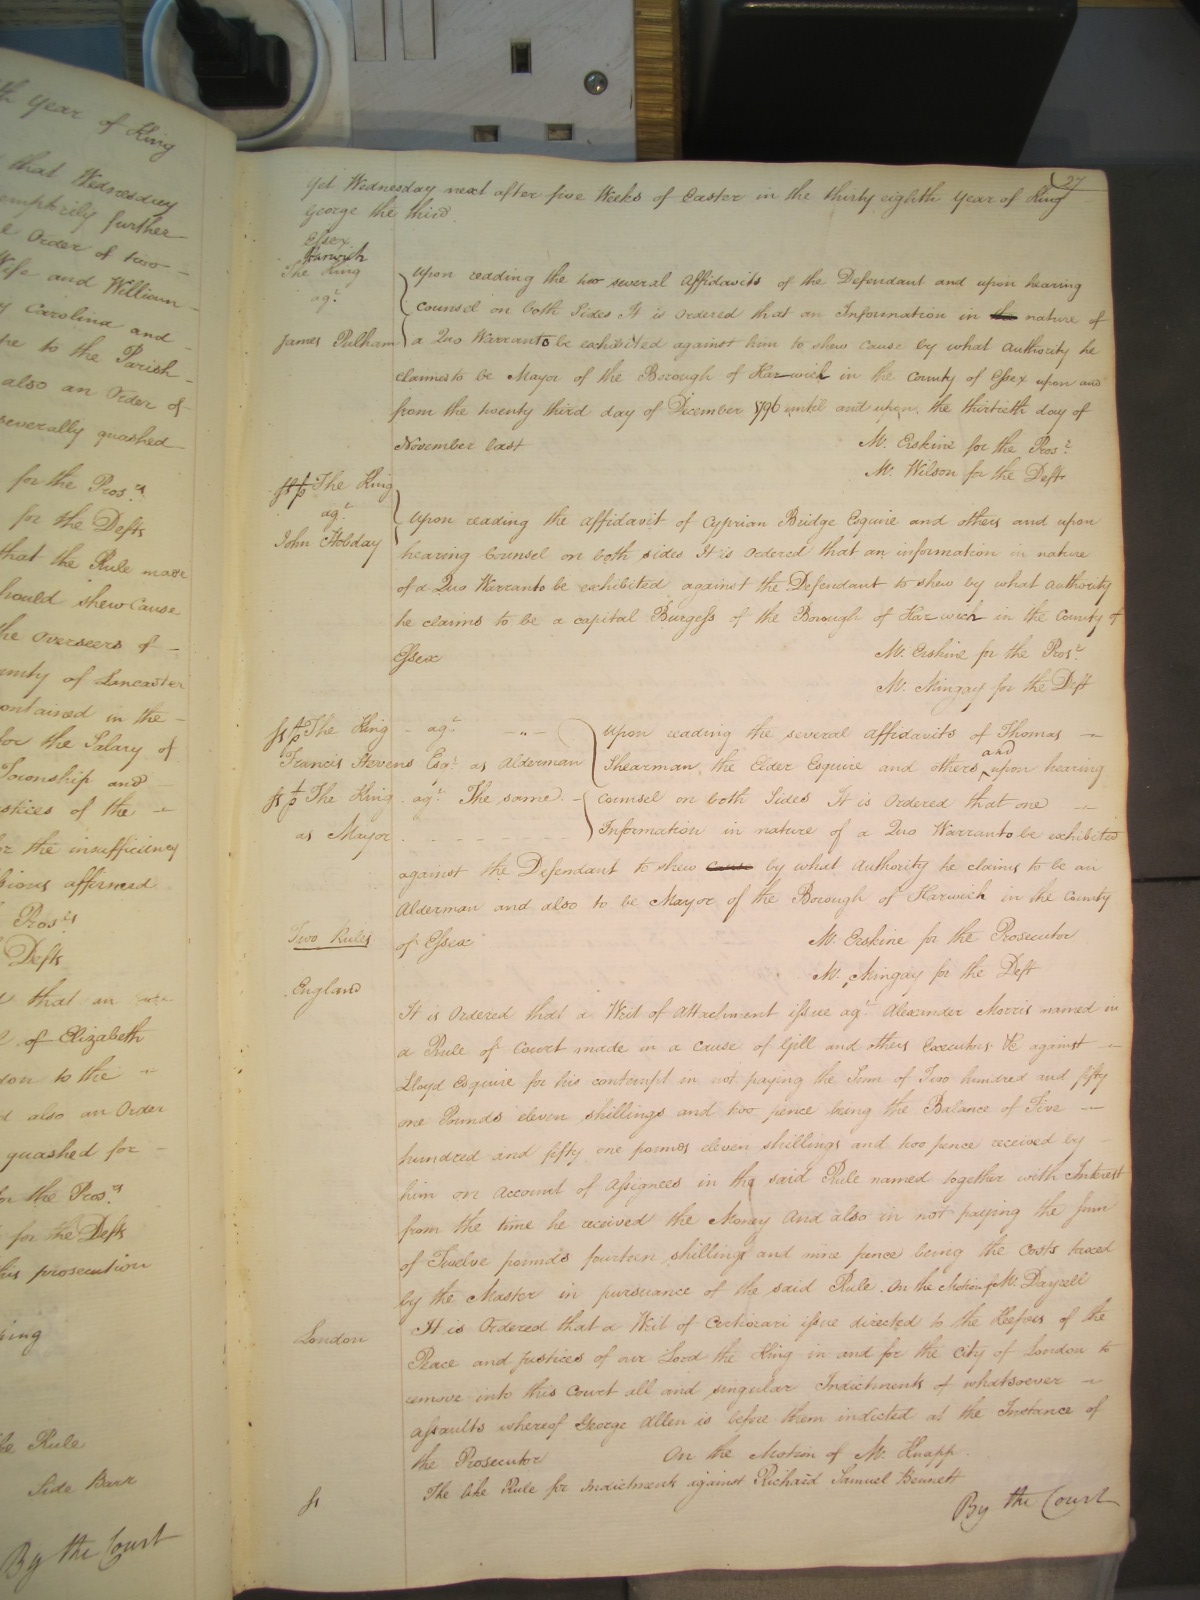 th Year of King
that Wednesday
further
Order of two
Wife and William
Carolina and
to the Parish
also an Order of
severally quashed
for the Pros.rs
for the Defts
that the Rule made
should shew Cause
the Overseers of
of Lancaster
contained in the
for the Salary of
Township and
Justices of the
the insufficiency
affirmed
Pros.rs
Defts
that an
of Elizabeth
to the
also an Order
quashed for
for the Pros.rs
for the Defts
this prosecution
Rule
Side Barr
By the Court
27
Yet Wednesday next after five Weeks of Easter in the thirty eighth Year of King
George the third
Essex
Harwich
The King
agt
James Pulham
Upon reading the two several Affidavits of the Defendant and upon hearing
Counsel on both Sides It is Ordered that an Information in the nature of
a Quo Warranto be exhibited against him to shew cause by what Authority he
claims to be Mayor of the Borough of Harwich in the County of Essex upon and
from the twenty third day of December 1796 until and upon the thirtieth day of
November last
Mr. Erskine for the Prosr.
Mr. Wilson for the Deft
The King
agt
John Hobday
Upon reading the affidavit of Cyprian Bridge Esquire and others and upon
hearing Counsel on both sides It is Ordered that an information in nature
of a Quo Warranto be exhibited against the Defendant to shew by what authority
he claims to be a capital Burgess of the Borough of Harwich in the County of
Essex
Mr. Erskine for the Prosr.
Mr. Mingay for the Deft
The King agt
Francis Stevens Esqr. as Alderman
The King agt The same
as Mayor
Upon reading the several Affidavits of Thomas
Shearman the Elder Esquire and others and upon hearing
Counsel on both Sides It is Ordered that one
Information in nature of a Quo Warranto be exhibited
against the Defendant to shew cause by what Authority he claims to be an
Alderman and also to be Mayor of the Borough of Harwich in the County
Two Rules
of Essex
Mr. Erskine for the Prosecutor
Mr. Mingay for the Deft
England
It is Ordered that a Writ of Attachment issue agt Alexander Morris named in
a Rule of Court made in a cause of Gill and others Executors &c against
Lloyd Esquire for his contempt in not paying the Sum of Two hundred and fifty
one Pounds eleven shillings and two pence being the Balance of Five
hundred and fifty one pounds eleven shillings and two pence received by
him on Account of Assignees in the said Rule named together with Interest
from the time he received the Money And also in not paying the sum
of Twelve pounds fourteen shillings and nine pence being the Costs taxed
by the Master in pursuance of the said Rule. On the Motion of Mr. Dayrell
London
It is Ordered that a Writ of Certiorari issue directed to the Keepers of the
Peace and Justices of our Lord the King in and for the City of London to
remove into this Court all and singular Indictments of whatsoever
assaults whereof George Allen is before them indicted at the Instance of
the Prosecutor On the Motion of Mr. Knapp.
The like Rule for Indictments against Richard Samuel Bennett
By the Court